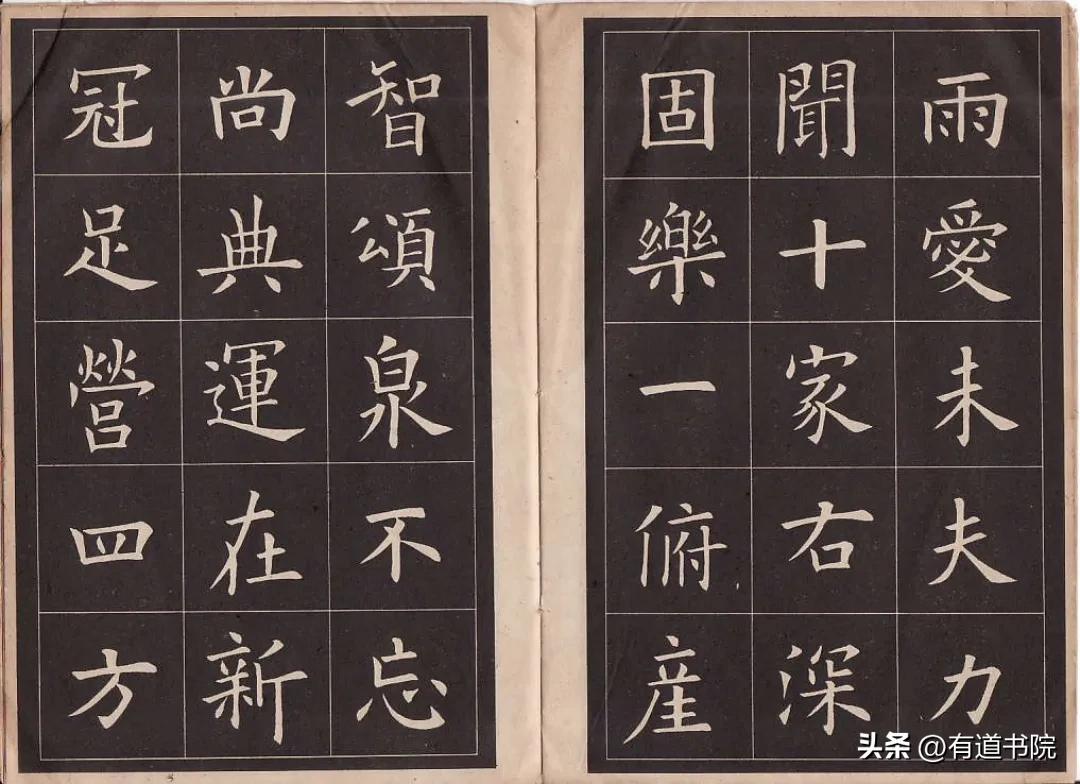 雨愛未夫力
聞十家右深
固樂一俯産
智頌泉不忘
尚典運在新
冠足營四方
头条 @有道书院